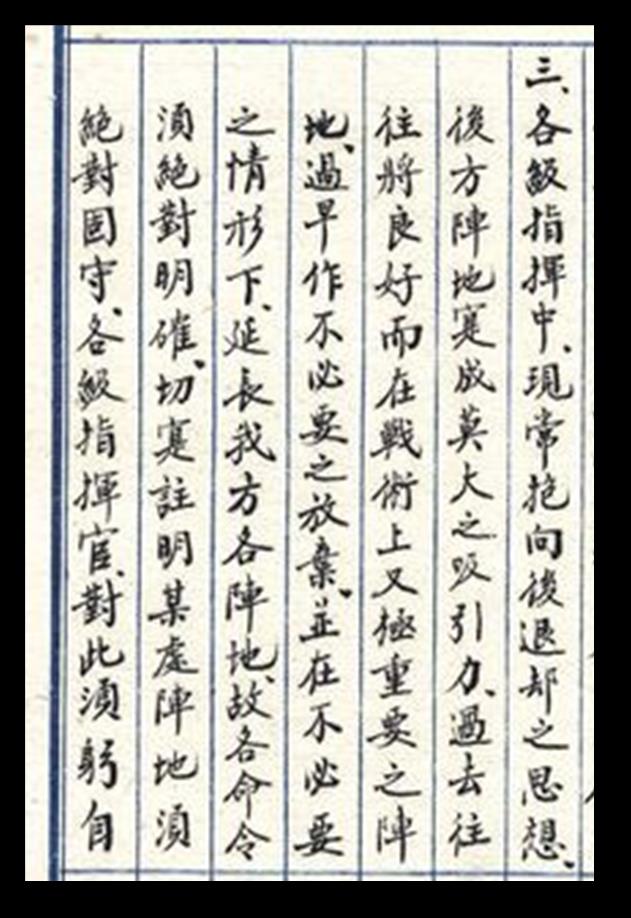 三、各級指揮中、現常抱向後退却之思想、
後方陣地寔成莫大之吸引力、過去往
往將良好而在戰術上又極重要之陣
地、過早作不必要之放棄、並在不必要
之情形下、延長我方各陣地、故各命令
須絕對明確、切寔註明某處陣地須
絕對固守、各級指揮官、對此須躬自